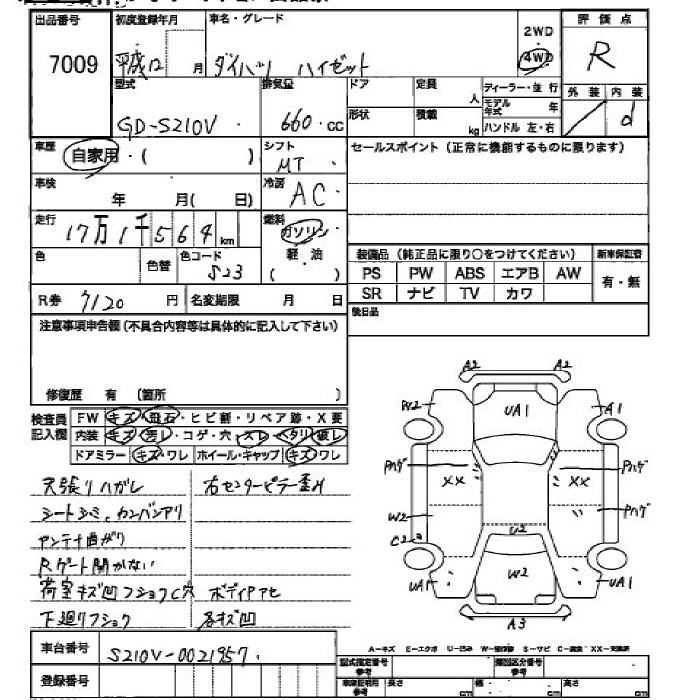 出品番号 初度登録年月 車名・グレード 2WD 評価点
7009 平成12 月 ダイハツ ハイゼット 4WD R
型式 排気量 ドア 定員 人 ディーラー・並行 外装 内装
GD-S210V 660 cc 形状 積載 kg モデル年式 年 ハンドル 左・右 d
車歴 自家用・( ) シフト MT セールスポイント(正常に機能するものに限ります)
車検 年 月( 日) 冷房 AC
走行 17万1千564km 燃料 ガソリン
軽油
( )
色 色替 色コード S23 装備品(純正品に限り○をつけてください) 新車保証書
PS PW ABS エアB AW 有・無
SR ナビ TV カワ
R券 7120円 名変期限 月 日 後日品
注意事項申告欄(不具合内容等は具体的に記入して下さい)
修復歴 有(箇所 )
検査員記入欄 FW キズ・飛石・ヒビ割・リペア跡・X要
内装 キズ・汚レ・コゲ・穴・スレ・ヘタリ・破レ
ドアミラー キズ・ワレ ホイール・キャップ キズ・ワレ
天張りハガレ 右センターピラー歪ミ
シートシミ、カンバンアリ
アンテナ曲がり
Rゲート開かない
荷室キズ凹フショクC穴 ボディPアセ
下廻りフショク 各キズ凹
A2 A2
W2 UA1 A1
Pハゲ XX XX Pハゲ
W2 Pハゲ
C2 U2
UA1 W2 UA1
A3
車台番号 S210V-0021957
A-キズ E-エクボ U-凹み W-補修跡 S-サビ C-腐食 XX-交換済
登録番号 型式指定番号 参考 類別区分番号 参考
車庫証明用 参考 長さ cm 幅 cm 高さ cm